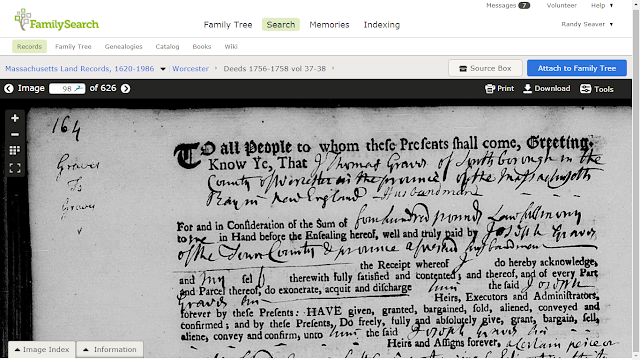 Messages 7 Volunteer Help
FamilySearch
Family Tree Search Memories Indexing
Randy Seaver
Records Family Tree Genealogies Catalog Books Wiki
Massachusetts Land Records, 1620-1986 Worcester Deeds 1756-1758 vol 37-38
Source Box
Attach to Family Tree
Image 98 of 626
Print Download Tools
164
Graves
To
Graves
TO all People to whom these Presents shall come, Greeting.
Know Ye, That I Thomas Graves of Southborough in the
County of Worcester in the province of the Massachusetts
Bay in New England Husbandman
For and in Consideration of the Sum of four hundred pounds Lawful money
to me in Hand before the Ensealing hereof, well and truly paid by Joseph Graves
of the Town County & province aforesaid husbandman
the Receipt whereof I do hereby acknowledge,
and my self therewith fully satisfied and contented; and thereof, and of every Part
and Parcel thereof, do exonerate, acquit and discharge him the said Joseph
Graves his Heirs, Executors and Administrators,
forever by these Presents: HAVE given, granted, bargained, sold, aliened, conveyed and
confirmed; and by these Presents, Do freely, fully and absolutely give, grant, bargain, sell,
aliene, convey and confirm, unto him the said Joseph Graves his
Heirs and Assigns forever, a certain peice or
Image Index
Information